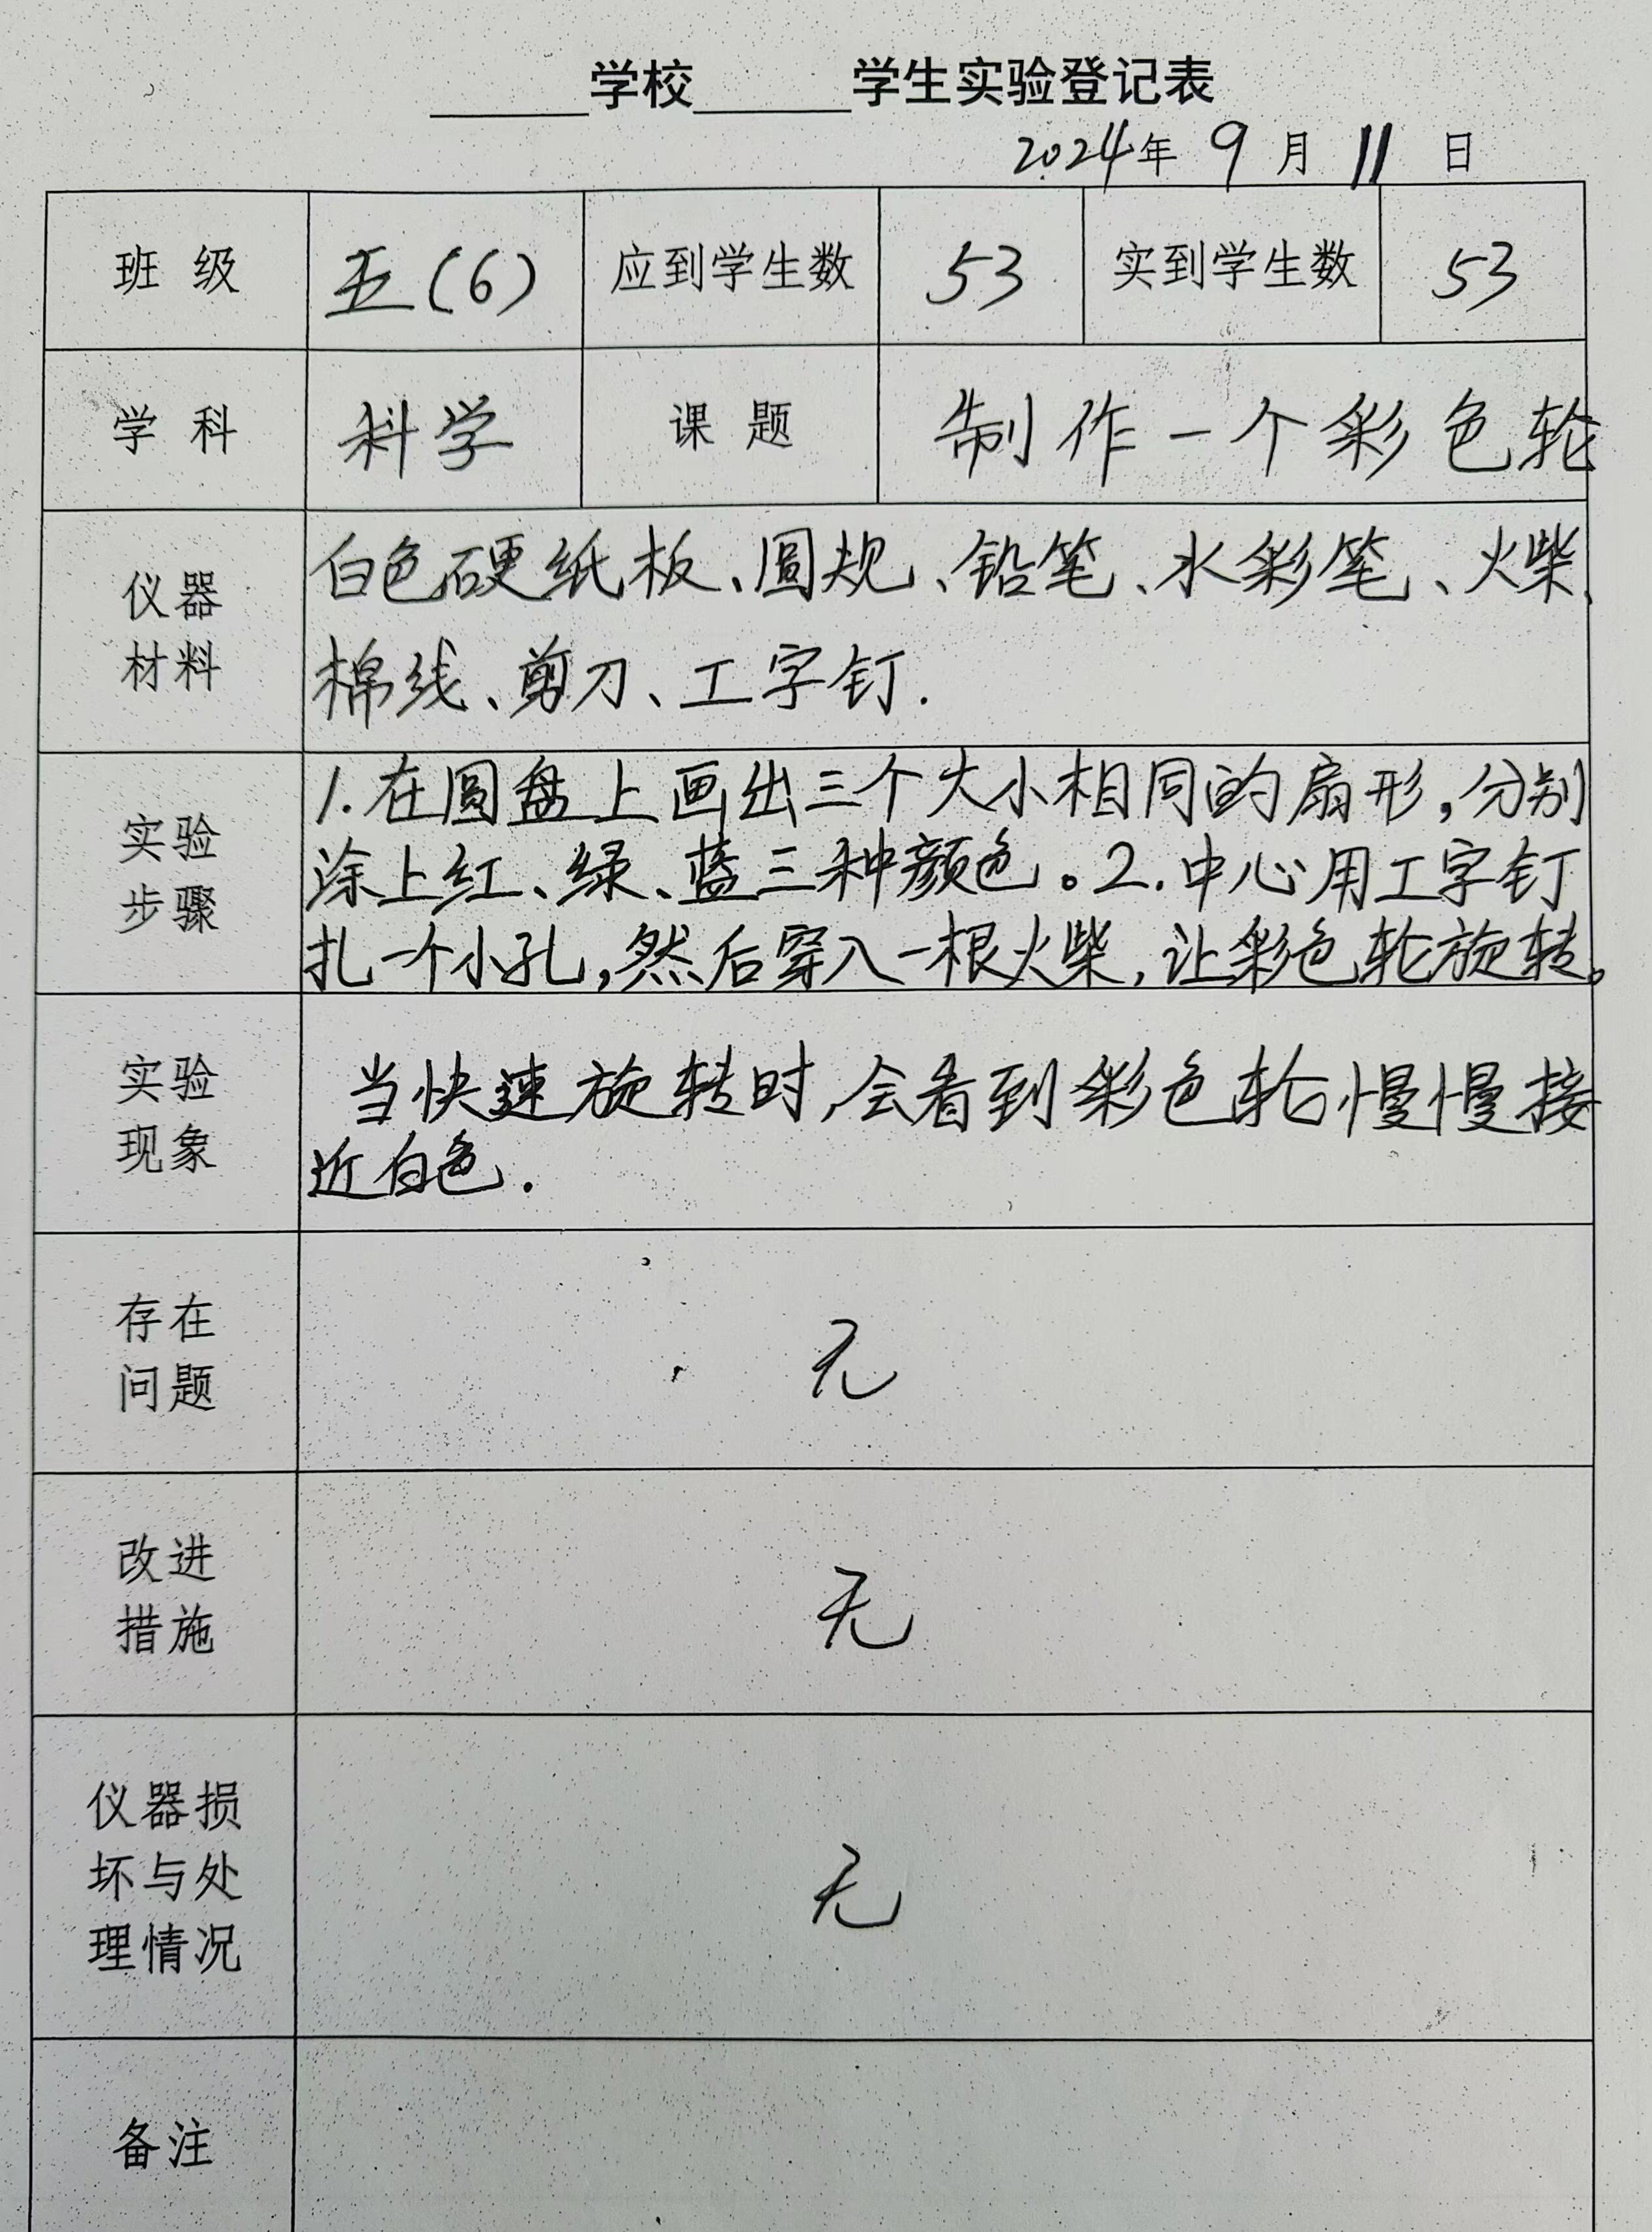 ______学校______学生实验登记表
2024年 9 月 11 日
班 级 五(6) 应到学生数 53 实到学生数 53
学 科 科学 课 题 制作一个彩色轮
仪器
材料
白色硬纸板、圆规、铅笔、水彩笔、火柴、
棉线、剪刀、工字钉.
实验
步骤
1.在圆盘上画出三个大小相同的扇形,分别
涂上红、绿、蓝三种颜色。2.中心用工字钉
扎一个小孔,然后穿入一根火柴,让彩色轮旋转。
实验
现象
当快速旋转时,会看到彩色轮慢慢接
近白色.
存在
问题
无
改进
措施
无
仪器损
坏与处
理情况
无
备注